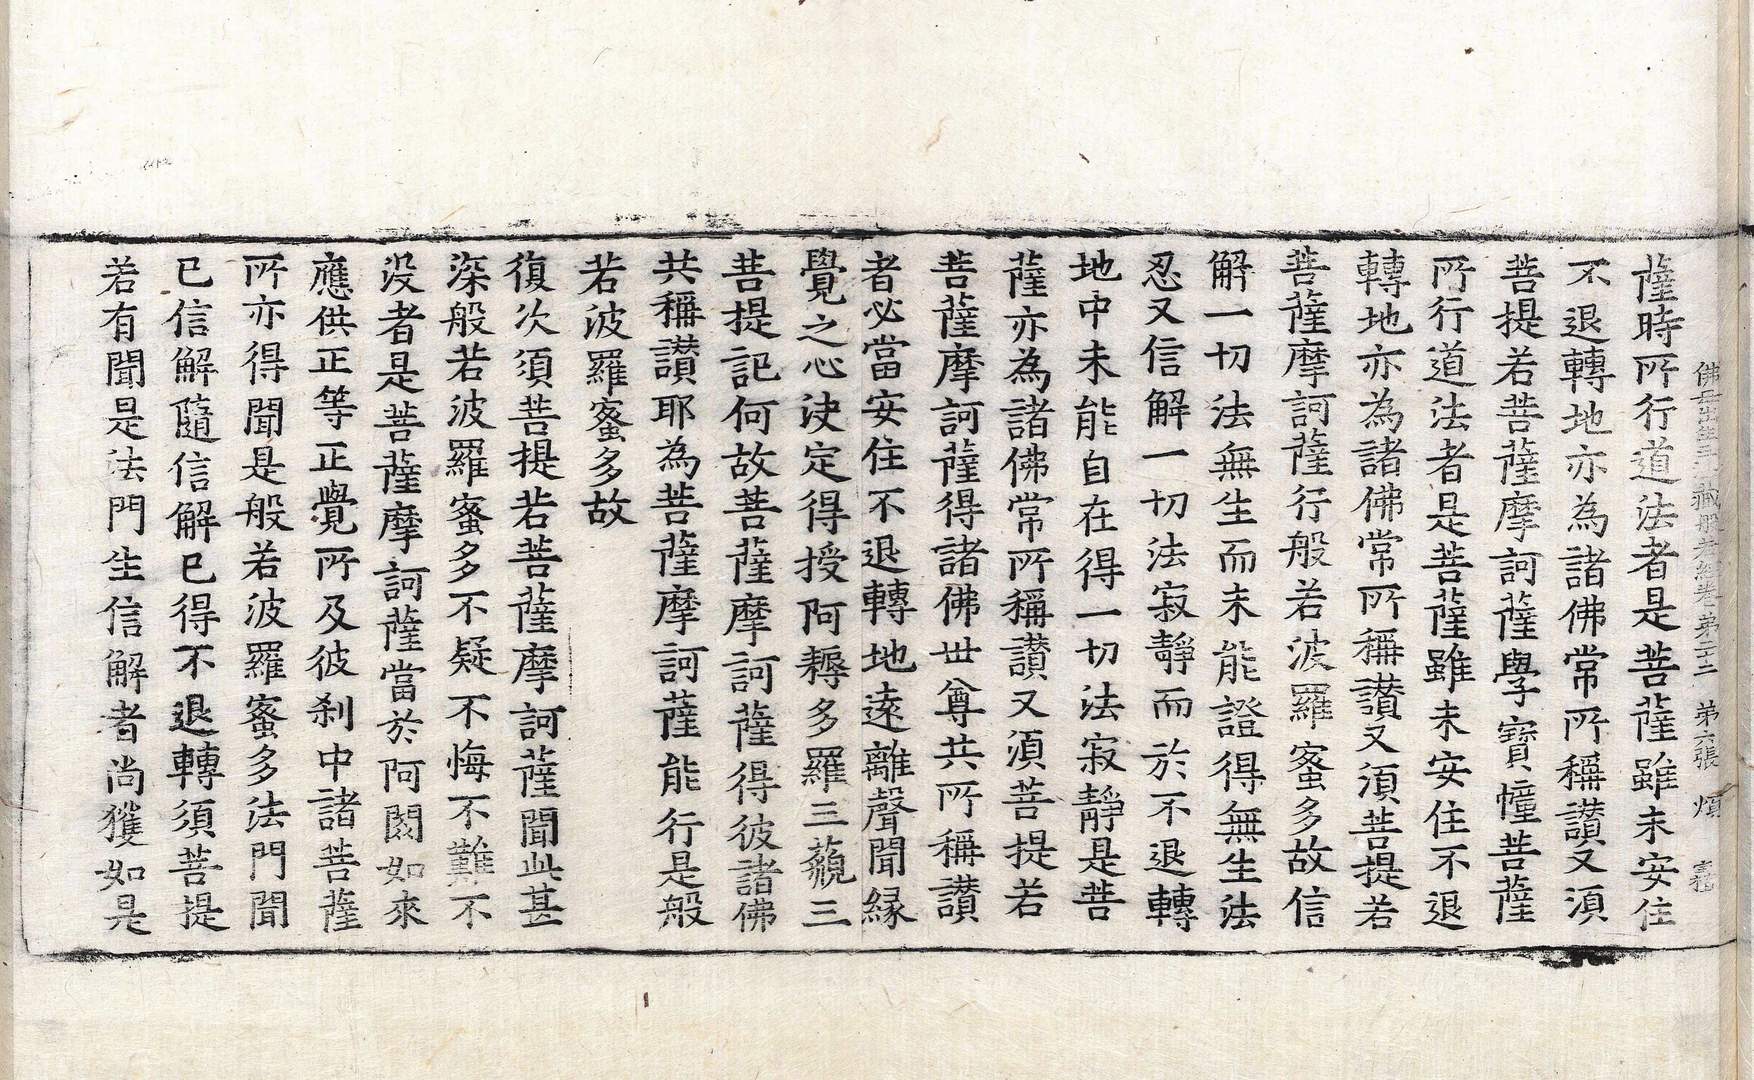 佛母出生三法藏般若經卷第二十二 第六張 煩
薩時所行道法者是菩薩雖未安住
不退轉地亦為諸佛常所稱讃又須
菩提若菩薩摩訶薩學寶幢菩薩
所行道法者是菩薩雖未安住不退
轉地亦為諸佛常所稱讃又須菩提若
菩薩摩訶薩行般若波羅蜜多故信
解一切法無生而未能證得無生法
忍又信解一切法寂靜而於不退轉
地中未能自在得一切法寂靜是菩
薩亦為諸佛常所稱讃又須菩提若
菩薩摩訶薩得諸佛世尊共所稱讃
者必當安住不退轉地遠離聲聞緣
覺之心決定得授阿耨多羅三藐三
菩提記何故菩薩摩訶薩得彼諸佛
共稱讃耶為菩薩摩訶薩能行是般
若波羅蜜多故
復次須菩提若菩薩摩訶薩聞此甚
深般若波羅蜜多不疑不悔不難不
沒者是菩薩摩訶薩當於阿閦如來
應供正等正覺所及彼剎中諸菩薩
所亦得聞是般若波羅蜜多法門聞
已信解隨信解已得不退轉須菩提
若有聞是法門生信解者尚獲如是